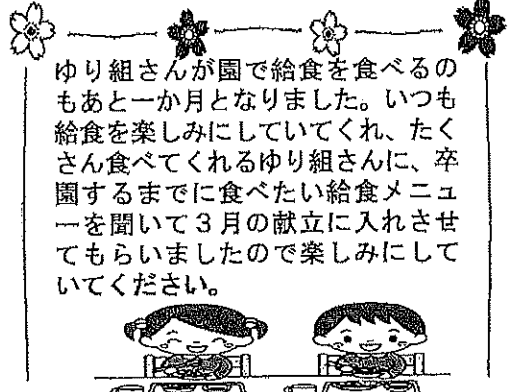 ゆり組さんが園で給食を食べるの
もあと一か月となりました。いつも
給食を楽しみにしていてくれ、たく
さん食べてくれるゆり組さんに、卒
園するまでに食べたい給食メニュ
ーを聞いて３月の献立に入れさせ
てもらいましたので楽しみにして
いてください。